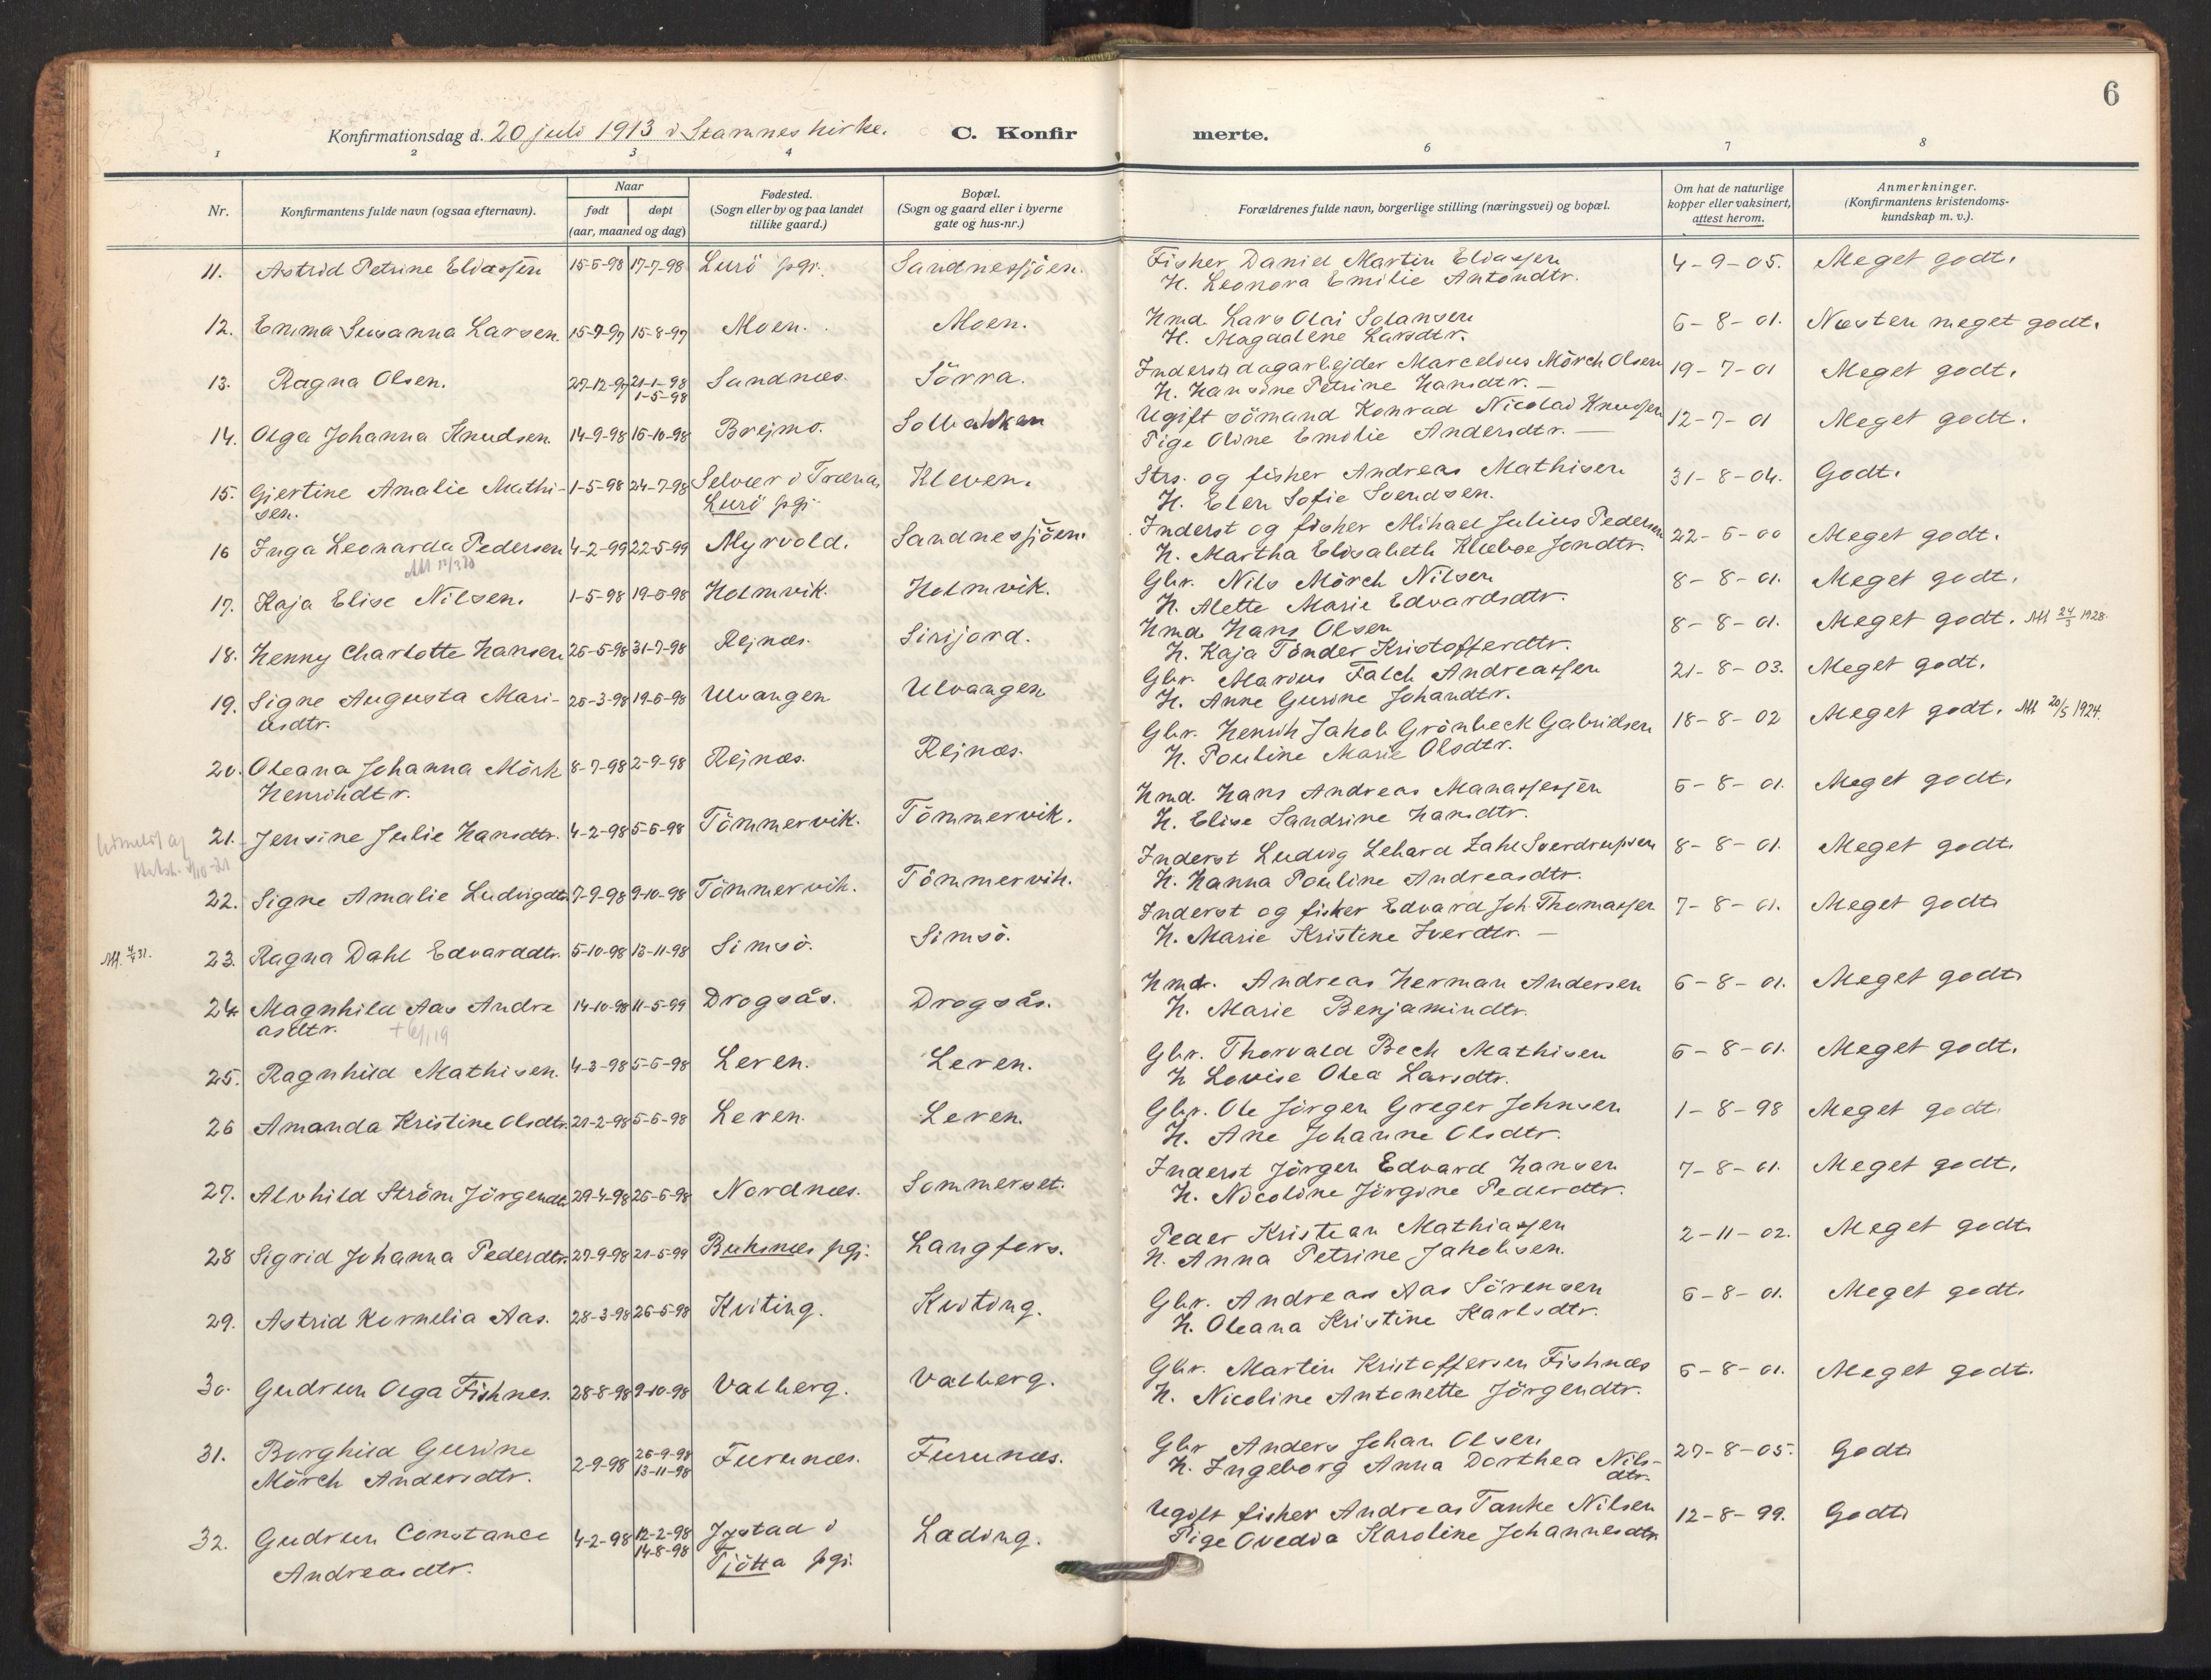 6
Konfirmationsdag d. 20 juli 1913 i Stamnes kirke.
C. Konfirmerte.
1 2 3 4 6 7 8
Nr.
Konfirmantens fulde navn (ogsaa efternavn).
Naar
født
døpt
(aar, maaned og dag)
Fødested.
(Sogn eller by og paa landet
tillike gaard.)
Bopæl.
(Sogn og gaard eller i byerne
gate og hus-nr.)
Forældrenes fulde navn, borgerlige stilling (næringsvei) og bopæl.
Om hat de naturlige
kopper eller vaksinert,
attest herom.
Anmerkninger.
(Konfirmantens kristendoms-
kundskap m. v.).
11. Astrid Petrine Eliassen 15-6-98 17-7-98 Lurö pgj. Sandnessjöen. Fisker Daniel Martin Eliassen 4-9-05. Meget godt.
H. Leonora Emilie Antondtr.
12. Emma Susanna Larsen. 15-7-97 15-8-97 Moen. Moen. Hmd. Lars Olai Johansen 6-8-01. Næsten meget godt.
H. Magdalene Larsdtr.
13. Ragna Olsen. 27-12-97 21-1-98 Sandnæs. Sörra. Inderst dagarbejder Marcelius Mörch Olsen 19-7-01 Meget godt.
1-5-98
H. Hansine Petrine Hansdtr. —
14. Olga Johanna Knudsen. 14-9-98 16-10-98 Brejmo. Solbakken Ugift sömand Konrad Nicolai Knudsen 12-7-01 Meget godt.
Pige Oline Emilie Andersdtr. —
15. Gjertine Amalie Mathi- 1-5-98 24-7-98 Selvær i Træna, Kleven. Strs. og fisker Andreas Mathisen 31-8-04. Godt.
sen. Lurö pgj. H. Elen Sofie Svendsen.
16 Inga Leonarda Pedersen 4-2-99 22-5-99 Myrvold. Sandnessjöen. Inderst og fisker Mikael Julius Pedersen 22-6-00 Meget godt.
H. Martha Elisabeth Klæboe Jondtr.
17. Kaja Elise Nilsen. 1-5-98 19-6-98 Holmvik. Holmvik. Gbr. Nils Mörch Nilsen 8-8-01. Meget godt.
H. Alette Marie Edvardsdtr.
18. Henny Charlotte Hansen 26-5-98 31-7-98 Rejnæs. Sirijord. Hmd. Hans Olsen 8-8-01. Meget godt. Att 24/3 1928.
H. Kaja Tönder Kristofferdtr.
19. Signe Augusta Mari- 26-3-98 19-6-98 Ulvangen Ulvangen Gbr. Marius Falch Andreassen 21-8-03. Meget godt.
usdtr. H. Anne Gurine Johandtr.
20. Oleana Johanna Mörk 8-7-98 2-9-98 Rejnæs. Rejnæs. Gbr. Henrik Jakob Grönbeck Gabrielsen 18-8-02 Meget godt. Att 20/5 1924.
Henrikdtr. H. Pouline Marie Olsdtr.
21. Jensine Julie Hansdtr. 4-2-98 5-6-98 Tömmervik. Tömmervik. Hmd. Hans Andreas Manassessen 6-8-01. Meget godt.
H. Elise Sandrine Hansdtr.
22. Signe Amalie Ludvigdtr. 7-9-98 9-10-98 Tömmervik. Tömmervik. Inderst Ludvig Lehard Zahl Sverdrupsen 8-8-01. Meget godt.
H. Hanna Pouline Andreasdtr.
Att. 4/7 31. 23. Ragna Dahl Edvarddtr. 5-10-98 13-11-98 Simsö. Simsö. Inderst og fisker Edvard Joh. Thomassen 7-8-01. Meget godt.
H. Marie Kristine Iverdtr. —
24. Magnhild Aas Andre 14-10-98 11-5-99 Drogsås. Drogsås. Hmd. Andreas Herman Andersen 6-8-01. Meget godt.
asdtr. H. Marie Benjamindtr.
25. Ragnhild Mathisen. 4-3-98 5-6-98 Leren. Leren. Gbr. Thorvald Bech Mathisen 6-8-01. Meget godt.
H. Lovise Olea Larsdtr.
26 Amanda Kristine Olsdtr. 21-2-98 5-6-98 Leren. Leren. Gbr. Ole Jörgen Greger Johnsen 1-8-98 Meget godt.
H. Ane Johanne Olsdtr.
27. Alvhild Ström Jörgendtr. 29-4-98 26-6-98 Nordnæs. Sommerset. Inderst Jörgen Edvard Hansen 7-8-01. Meget godt.
H. Nicoline Jörgine Pederdtr.
28 Sigrid Johanna Pedersdtr. 27-9-98 21-5-99 Buksnæs pgj. Langfors. Peder Kristian Mathiassen 2-11-02. Meget godt.
H. Anna Petrine Jakobsen.
29. Astrid Kornelia Aas. 28-3-98 26-6-98 Kviting. Kviting. Gbr. Andreas Aas Sörensen 6-8-01. Meget godt.
H. Oleana Kristine Karlsdtr.
30. Gudrun Olga Fishnes. 28-8-98 9-10-98 Valberg. Valberg. Gbr. Martin Kristoffersen Fishnæs 6-8-01. Meget godt.
H. Nicoline Antonette Jörgendtr.
31. Borghild Gurine 2-9-98 26-9-98 Furunæs. Furunæs. Gbr Anders Johan Olsen 27-8-05. Godt.
Mörch Andersdtr. 13-11-98 H. Ingeborg Anna Dorthea Nils-
dtr.
32. Gudrun Constance 4-2-98 12-2-98 Igstad i Lading. Ugift fisker Andreas Tanke Nilsen 12-8-99. Godt.
Andreasdtr. 14-8-98 Tjötta pgj. Pige Ovedia Karoline Johannesdtr.